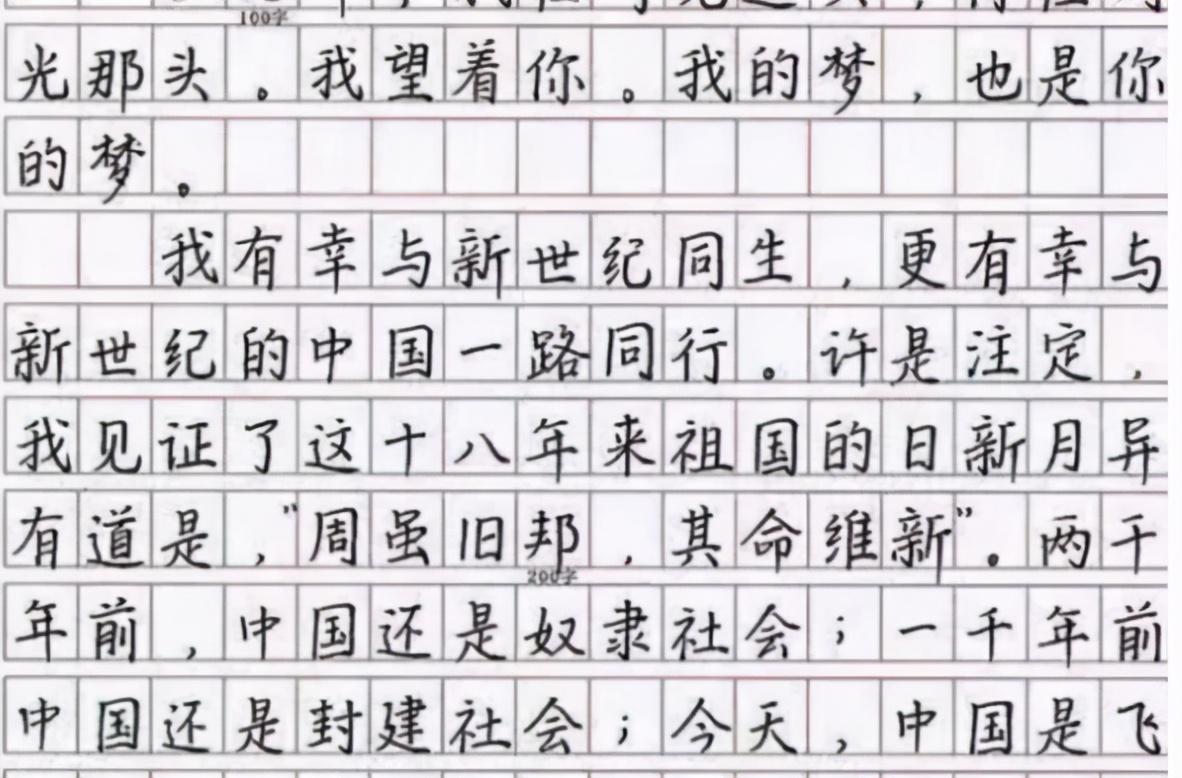 100字
光那头。我望着你。我的梦，也是你
的梦。
我有幸与新世纪同生，更有幸与
新世纪的中国一路同行。许是注定，
我见证了这十八年来祖国的日新月异
有道是，“周虽旧邦，其命维新”。两千
200字
年前，中国还是奴隶社会；一千年前
中国还是封建社会；今天，中国是飞